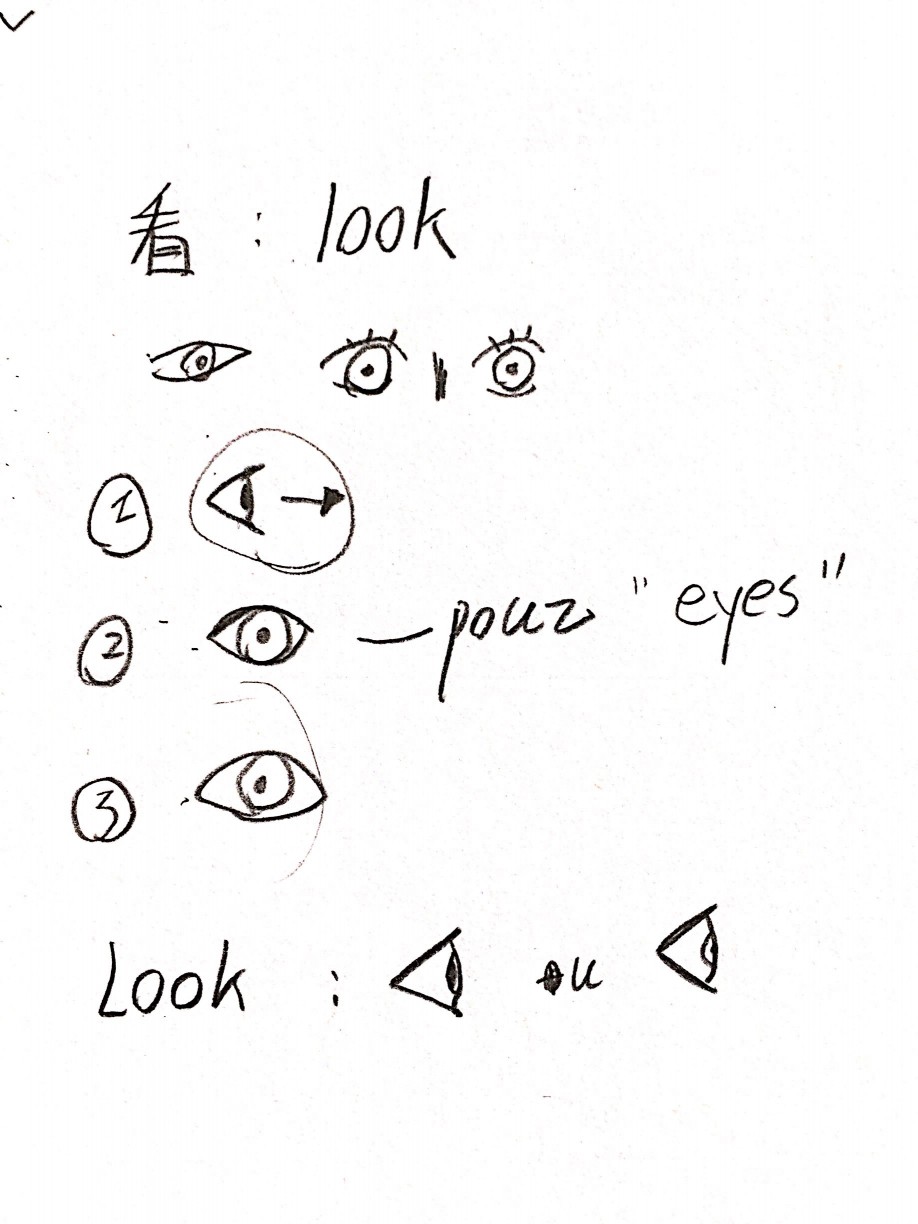 看 : look
1
2 — pour "eyes"
3
Look : ou